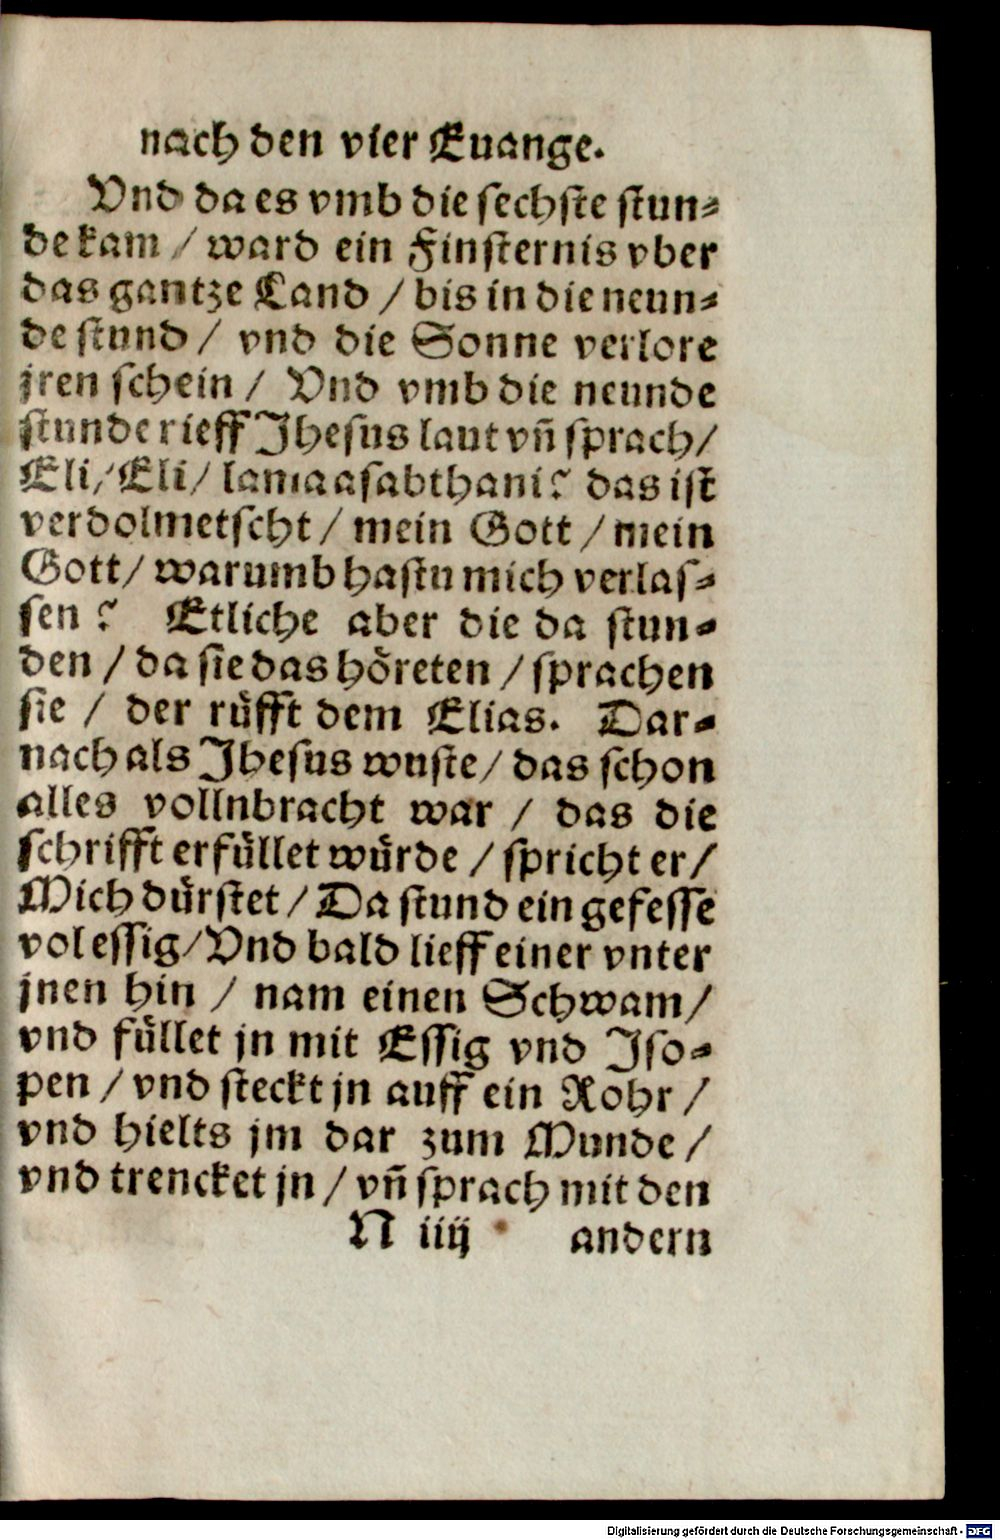 nach den vier Euange.
Vnd da es vmb die sechste stun⸗
de kam / ward ein Finsternis vber
das gantze Land / bis in die neun⸗
de stund / vnd die Sonne verlore
jren schein / Vnd vmb die neunde
stunde rieff Jhesus laut vñ sprach /
Eli / Eli / lama asabthani? das ist
verdolmetscht / mein Gott / mein
Gott / warumb hastu mich verlas⸗
sen? Etliche aber die da stun⸗
den / da sie das hoͤreten / sprachen
sie / der ruͤfft dem Elias. Dar⸗
nach als Jhesus wuste / das schon
alles vollnbracht war / das die
schrifft erfuͤllet wuͤrde / spricht er /
Mich duͤrstet / Da stund ein gefesse
vol essig / Vnd bald lieff einer vnter
jnen hin / nam einen Schwam /
vnd fuͤllet jn mit Essig vnd Jso⸗
pen / vnd steckt jn auff ein Rohr /
vnd hielts jm dar zum Munde /
vnd trencket jn / vñ sprach mit den
N iiij andern
Digitalisierung gefördert durch die Deutsche Forschungsgemeinschaft - DFG